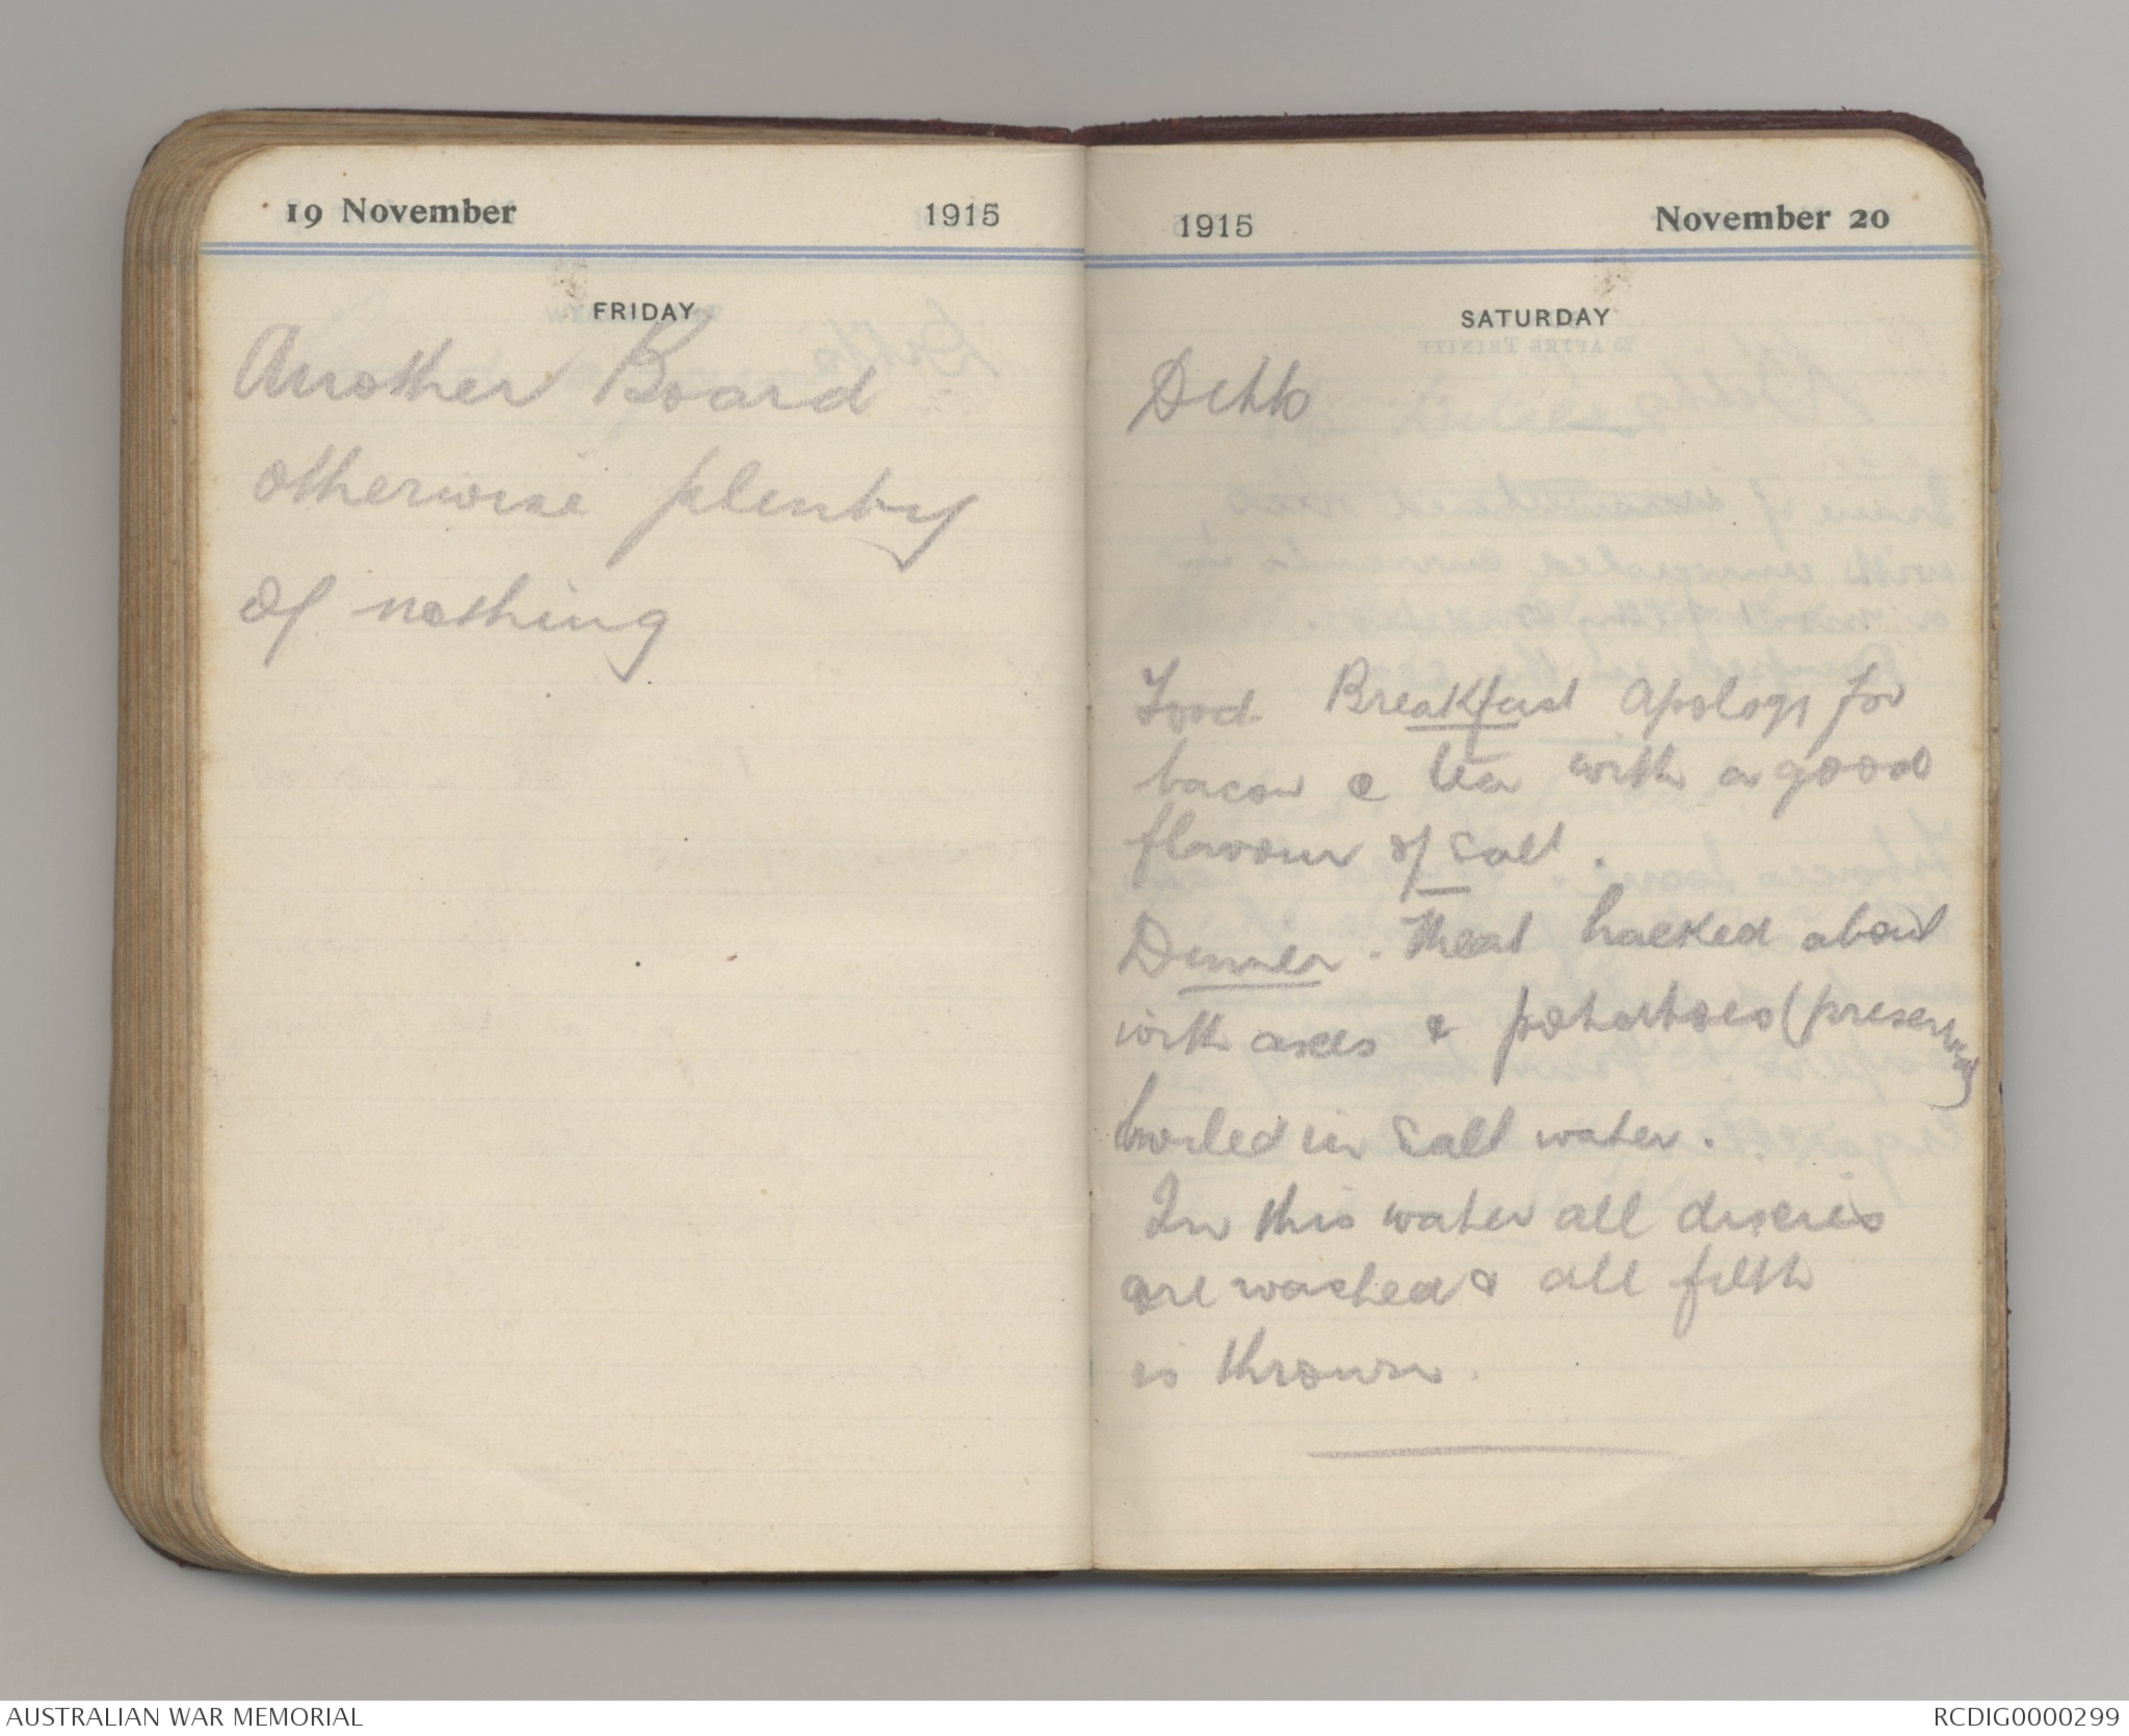 19 November 1915
FRIDAY
Another Board
otherwise plenty
of nothing
1915 November 20
SATURDAY
Ditto
Food Breakfast apology for
bacon & tea with a good
flavour of salt.
Dinner. Meat hacked about
with axes & potatoes (preserved)
boiled in salt water.
In this water all
are washed & all filth
is thrown.
AUSTRALIAN WAR MEMORIAL
RCDIG0000299